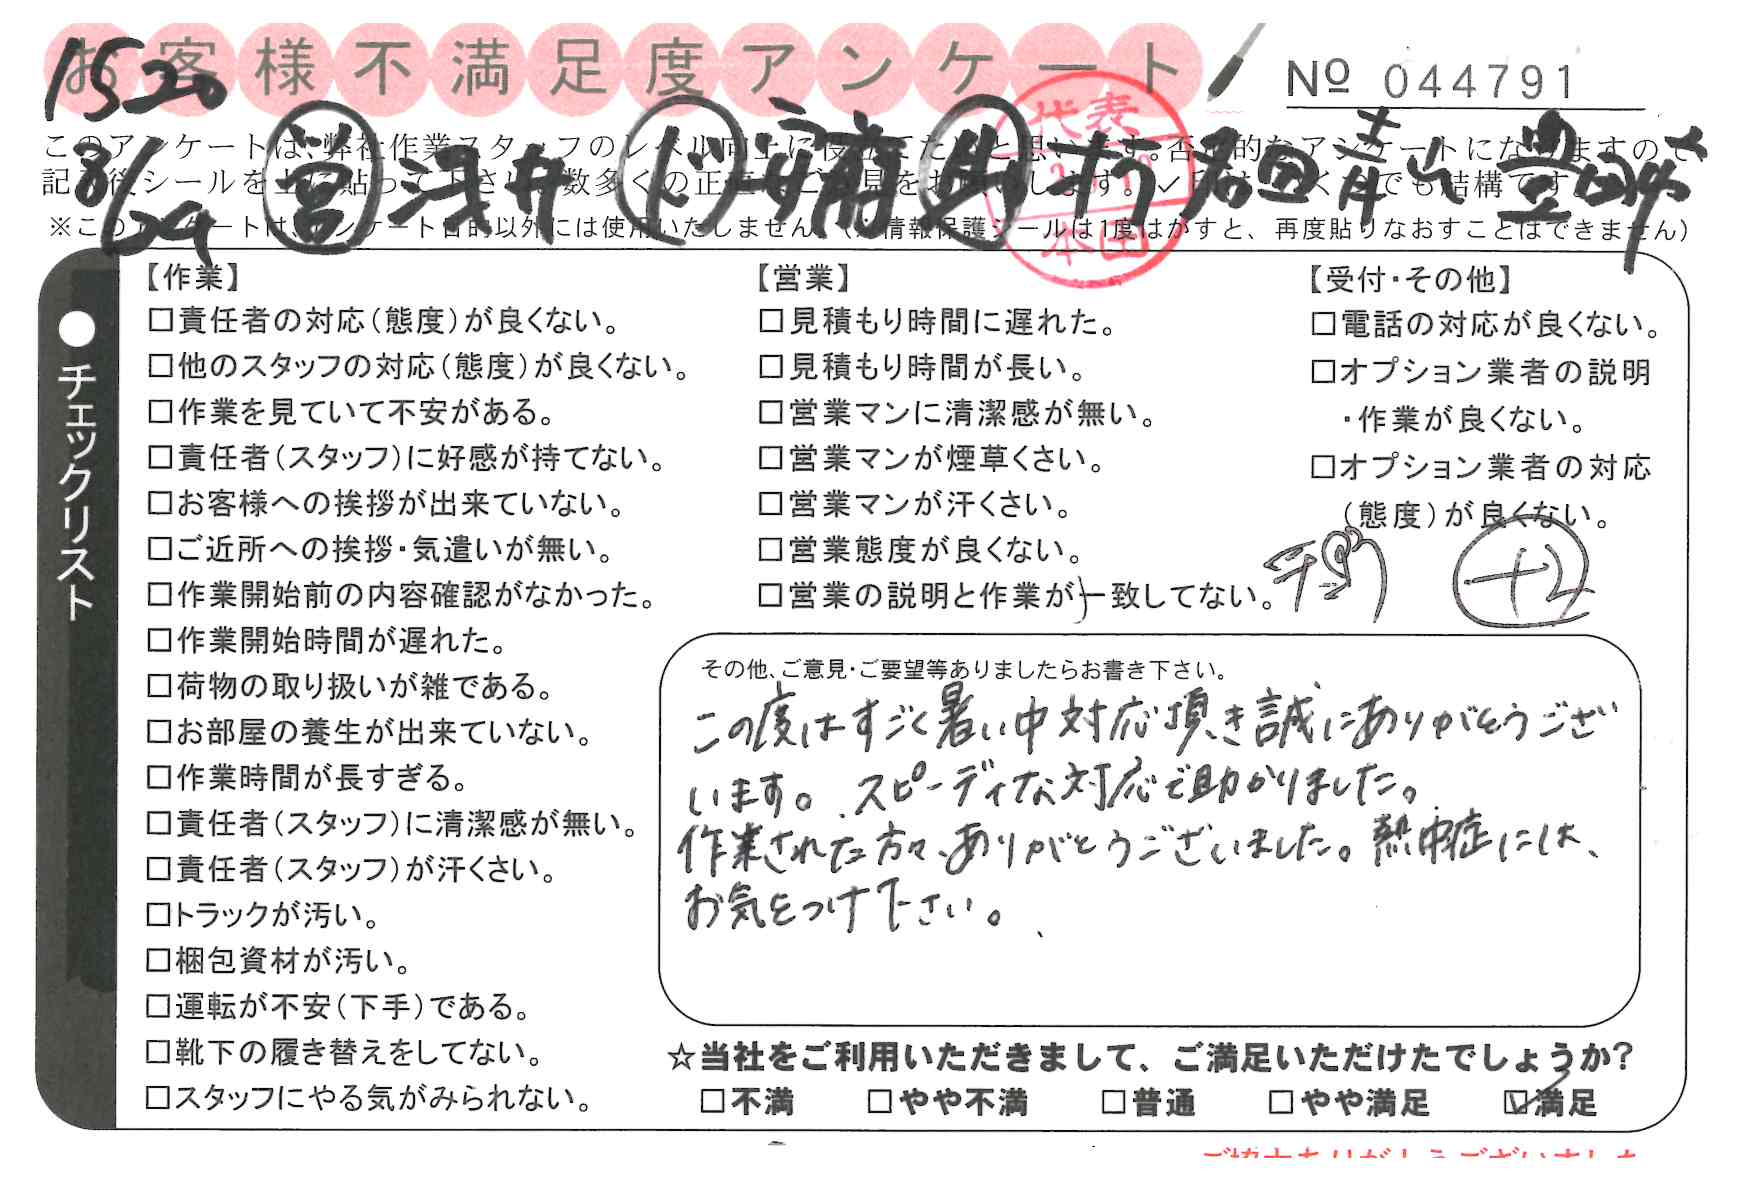 お客様不満足度アンケート
№ 044791
1520
8/29 営 浅井 ド 安 作 青山
代表
本田
このアンケートは、弊社作業スタッフのレベル向上に役立てたいと思います。否定的なアンケートになりますので
記入後シールを上に貼って下さい。数多くの正直なご意見をお願いします。✓印はいくつでも結構です
※このアンケートはアンケート目的以外には使用いたしません。(※情報保護シールは1度はがすと、再度貼りなおすことはできません)
●チェックリスト
【作業】
□責任者の対応(態度)が良くない。
□他のスタッフの対応(態度)が良くない。
□作業を見ていて不安がある。
□責任者(スタッフ)に好感が持てない。
□お客様への挨拶が出来ていない。
□ご近所への挨拶・気遣いが無い。
□作業開始前の内容確認がなかった。
□作業開始時間が遅れた。
□荷物の取り扱いが雑である。
□お部屋の養生が出来ていない。
□作業時間が長すぎる。
□責任者(スタッフ)に清潔感が無い。
□責任者(スタッフ)が汗くさい。
□トラックが汚い。
□梱包資材が汚い。
□運転が不安(下手)である。
□靴下の履き替えをしてない。
□スタッフにやる気がみられない。
【営業】
□見積もり時間に遅れた。
□見積もり時間が長い。
□営業マンに清潔感が無い。
□営業マンが煙草くさい。
□営業マンが汗くさい。
□営業態度が良くない。
□営業の説明と作業が一致してない。
【受付・その他】
□電話の対応が良くない。
□オプション業者の説明
・作業が良くない。
□オプション業者の対応
(態度)が良くない。
+2
その他、ご意見・ご要望等ありましたらお書き下さい。
この度はすごく暑い中対応頂き誠にありがとうござい
います。スピーディな対応で助かりました。
作業された方々、ありがとうございました。熱中症には、
お気をつけ下さい。
☆当社をご利用いただきまして、ご満足いただけたでしょうか?
□不満 □やや不満 □普通 □やや満足 ☑満足
ご協力ありがとうございました